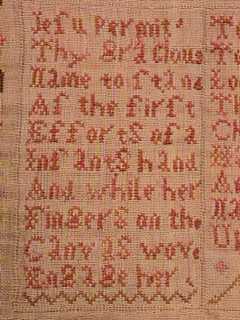 Jeſu permit
Thy Gracious
Name to ſtand
Aſ the firſt
Efforts of a
Infants hand
And while her
Fingers on the
Canvas move
Engage her